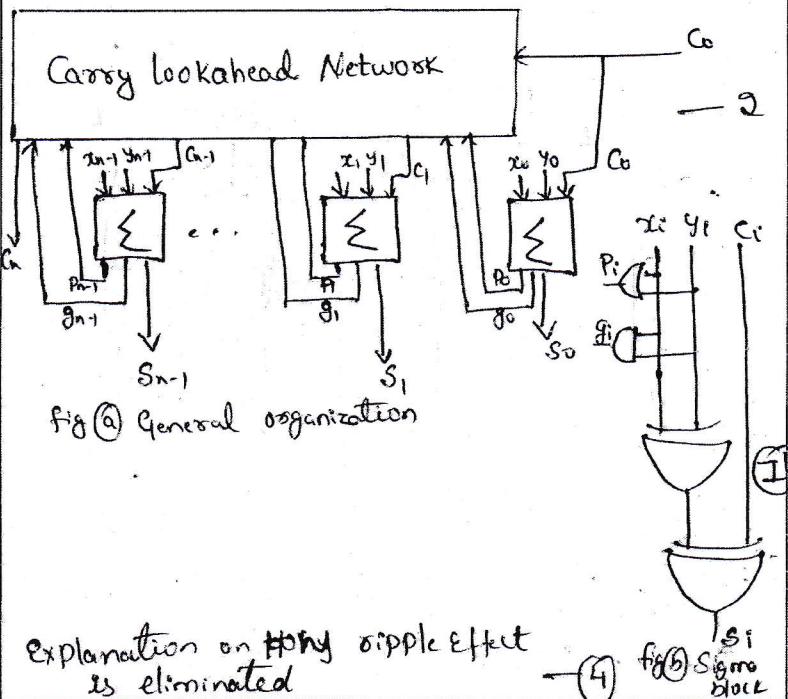 Carry lookahead Network
C0
— 2
xn-1 yn-1 Cn-1
x1 y1 C1
x0 y0 C0
Σ ... Σ Σ
Cn
Pn-1 P1 P0
gn-1 g1 g0
Sn-1 S1 S0
fig (a) General organization
xi yi ci
Pi
gi
(I)
Si
fig (b) Sigma
block
Explanation on why ripple Effect
is eliminated — (4)